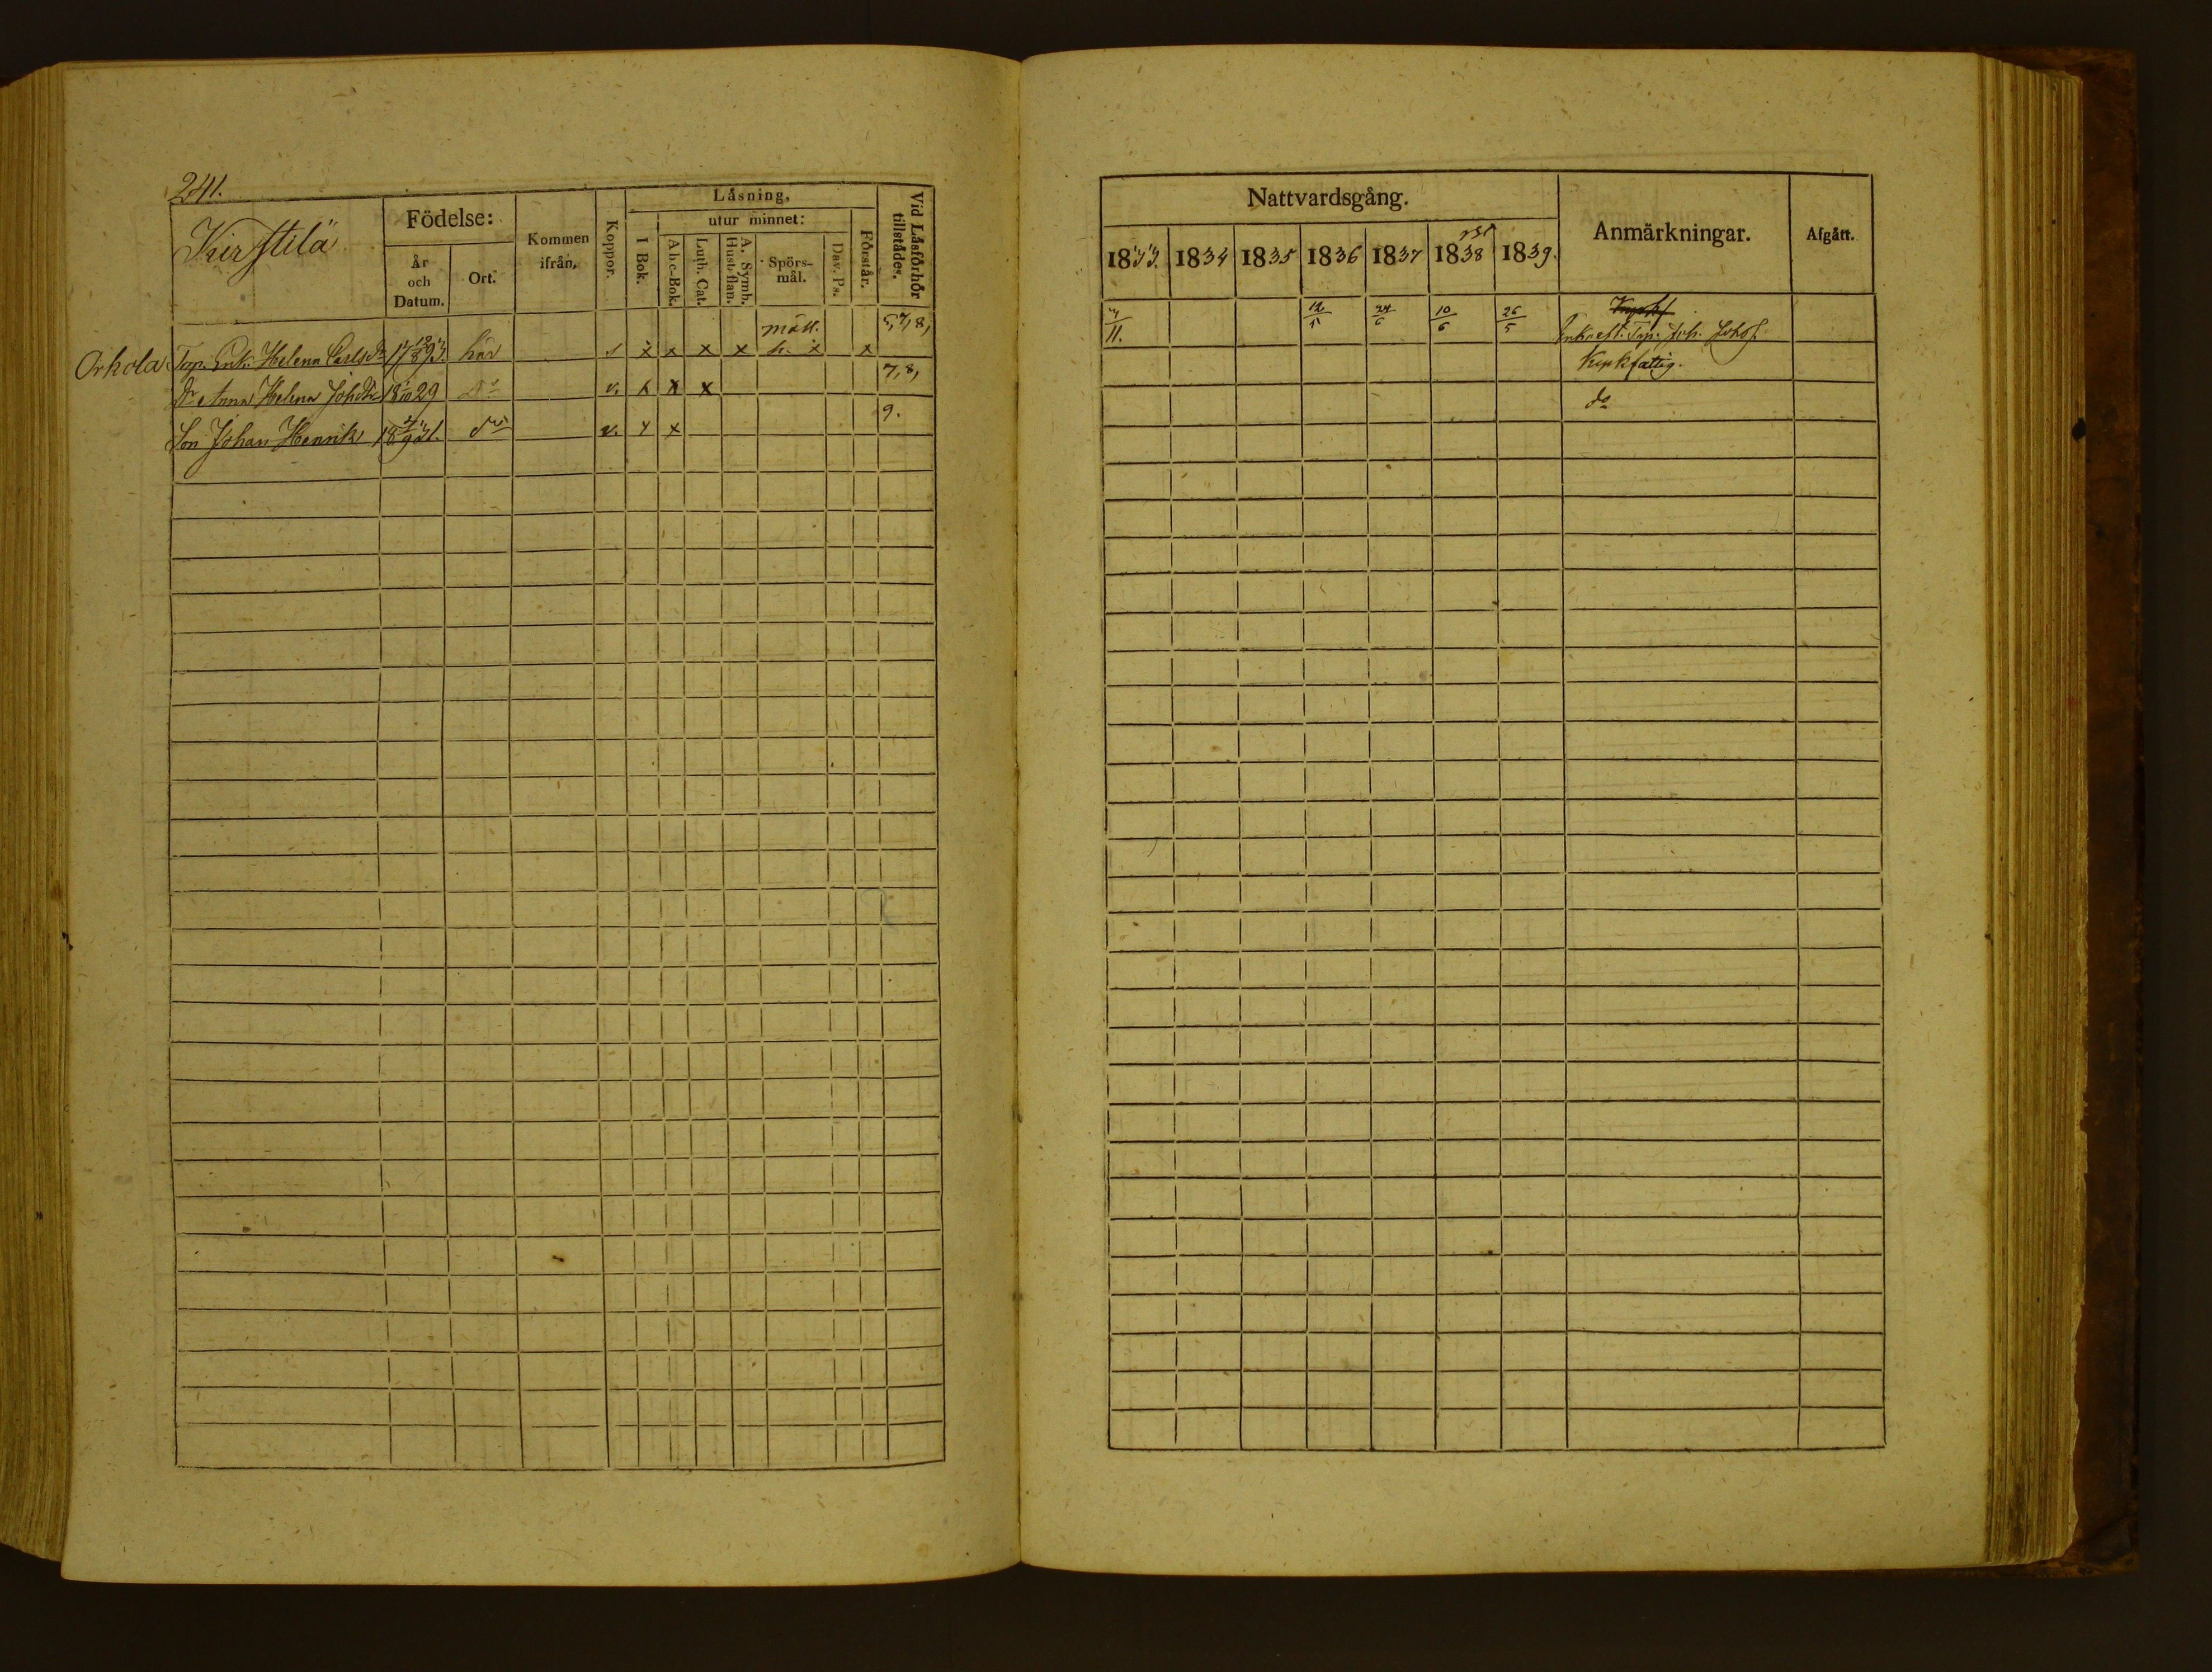 241.
Kirstilä
Födelse:
År
och
Datum.
Ort.
Kommen
ifrån.
Koppor.
Låsning,
I Bok.
utur minnet:
A b c-Bok.
Luth. Cat.
A. Symb.
Hust-flan.
Spörs-
mål.
Dav. Ps.
Förstår.
Vid Låsförhör
tillstädes.
Orhola Torp. Enk: Helena Carlsdr 17 12/8 93. här s x x x x mått. h. x x 5,7,8,
Dr Anna Helena Johdr 18 1/10 29 Do v. h x x 7,8,
Son Johan Henrik 18 4/9 31. do v. x x 9.
Nattvardsgång.
1833. 1834 1835 1836 1837 1838 1839.
Anmärkningar.
Afgått.
7/11. 12/5 24/6 10/6 26/5
Enk. eft. Torp. Joh. Johsf.
Kyrkfattig.
do